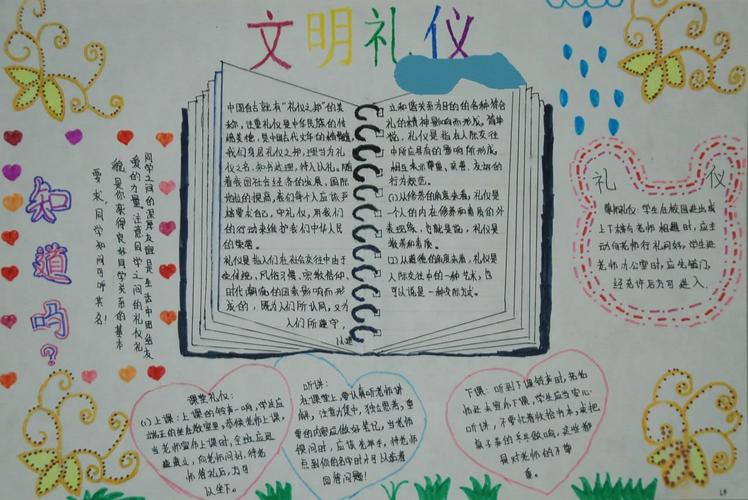 文明礼仪
中国自古就有“礼仪之邦”的美
称，注重礼仪是中华民族的传
统美德，是中国古代文华的精髓，
我们身居礼仪之邦，理当为礼
仪之名，知书达理，待人以礼。随
着我国社会经济的发展，国际
地位的提高，我们每个人应该严
格要求自己，守礼仪，用我们
的行动来维护我们中华人民
的尊严。
礼仪是指人们在社会交往中由于
受传统，风俗习惯，宗教信仰，
时代潮流的因素影响而形
成的，既为人们所认同，又为
人们所遵守，
以建
立和谐关系为目的的各种符合
礼的精神影响而形成。简单
说，礼仪是指在人际交往
中所应具有的
相互表示尊重，友好的
行为规范。
(1)从修养的角度来看，礼仪是
一个人的内在修养和素质的外
表现形，也就是说，礼仪是
教养和素质。
(2)从道德的角度来看，礼仪是
人际交往中的一种艺术，也
可以说是一种交际方式。
知道吗？
同学之间的深厚友谊是生活中团结友
爱的力量，注意同学之间的礼仪礼
貌是你获得良好同学关系的基本
要求，同学知间可听其名！
礼仪
尊师礼仪：学生在校园进出或
上下楼与老师相遇时，应主
动向老师行礼问好，学生进
老师办公室时，应先敲门，
经允许后方可进入。
课堂礼仪：
(1)上课：上课的铃声一响，学生应
端正的坐在教室里，恭候老师上课，
当老师宣布上课时，全班应迅
速肃立，向老师问好，待老
师答礼后，方可
以坐下。
听讲：
在课堂上，要认真听老师讲
解，注意力集中，独立思考，重
要的内容应做好笔记，当老师
提问时，应该先举手，待老师
点到你的名字时才可以站着
回答问题！
下课：听到下课铃声时，若老
师还未宣布下课，学生应当安心
听讲，不要忙着收拾书本，或把
桌子弄的乒乒做响，这些都
是对老师的不尊
重。